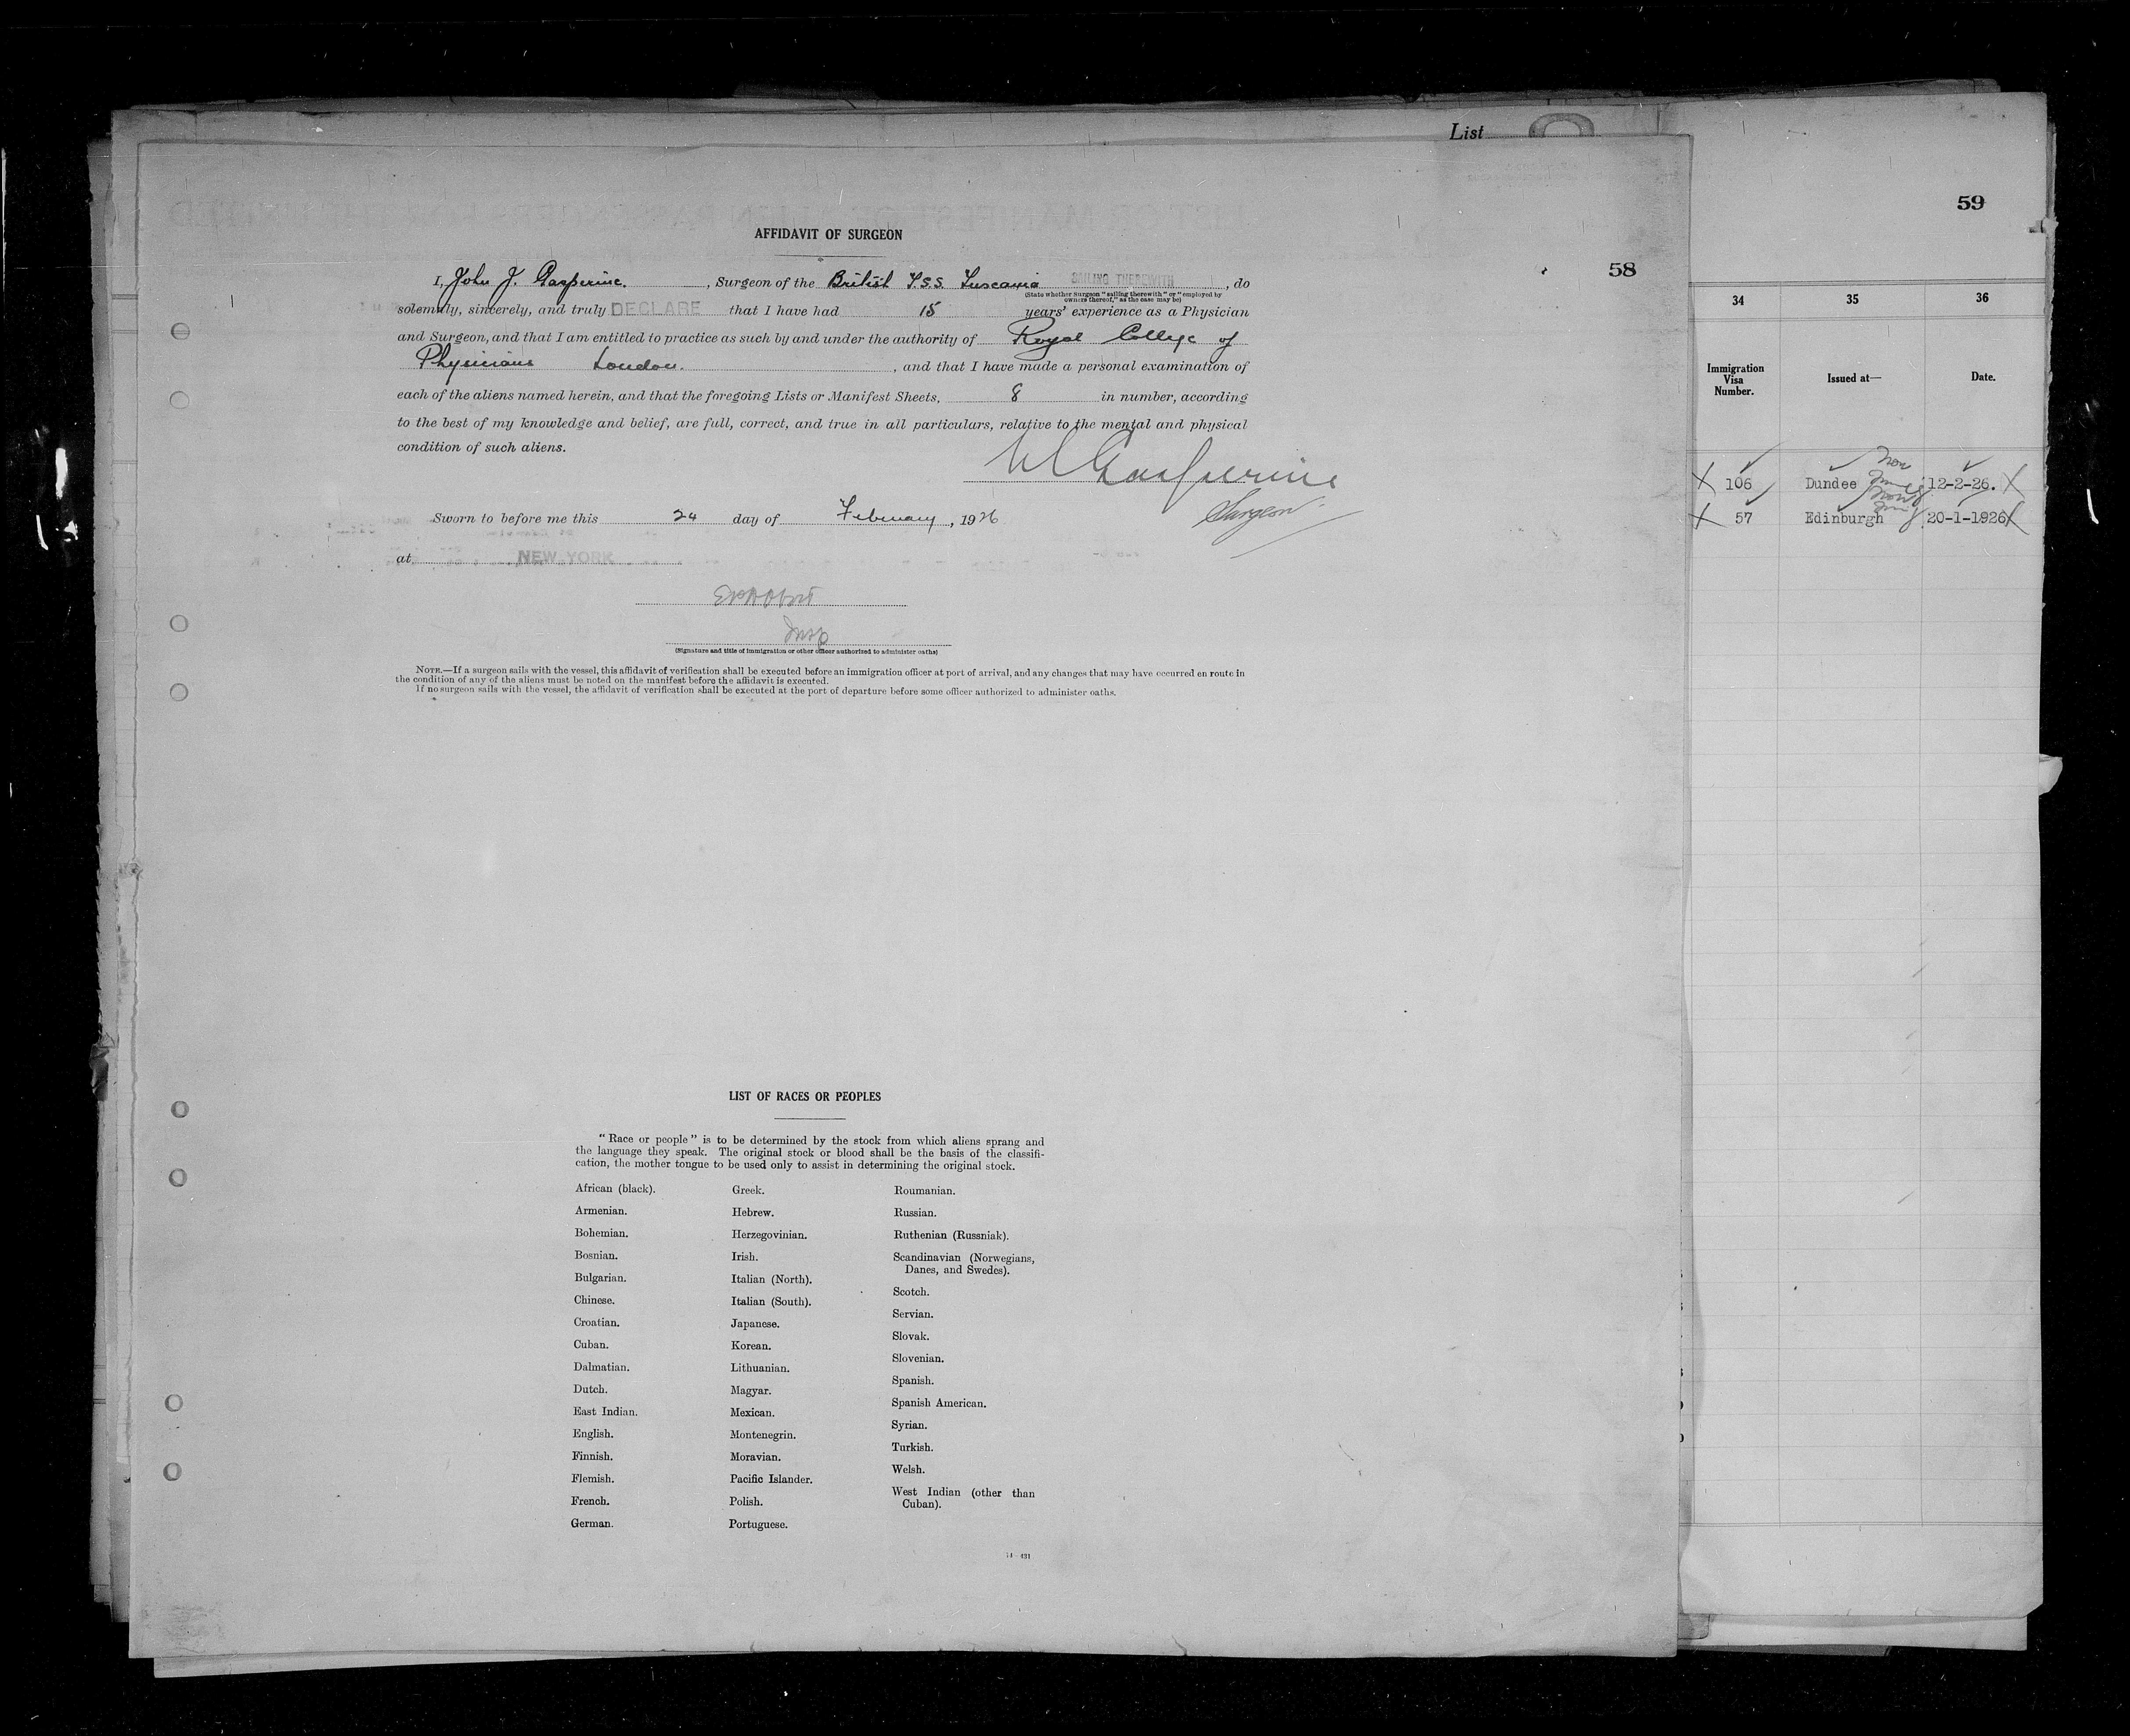 List
59
58
AFFIDAVIT OF SURGEON
I, John J. Gasperine, Surgeon of the British T.S.S. Tuscania SAILING THEREWITH, do
(State whether Surgeon "sailing therewith" or "employed by
owners thereof," as the case may be)
solemnly, sincerely, and truly DECLARE that I have had 15 years' experience as a Physician
and Surgeon, and that I am entitled to practice as such by and under the authority of Royal College of
Physicians London, and that I have made a personal examination of
each of the aliens named herein, and that the foregoing Lists or Manifest Sheets, 8 in number, according
to the best of my knowledge and belief, are full, correct, and true in all particulars, relative to the mental and physical
condition of such aliens.
Gasperine
Surgeon
Sworn to before me this 24 day of February, 1926
at NEW YORK
Insp
(Signature and title of immigration or other officer authorized to administer oaths)
NOTE.—If a surgeon sails with the vessel, this affidavit of verification shall be executed before an immigration officer at port of arrival, and any changes that may have occurred en route in
the condition of any of the aliens must be noted on the manifest before the affidavit is executed.
If no surgeon sails with the vessel, the affidavit of verification shall be executed at the port of departure before some officer authorized to administer oaths.
LIST OF RACES OR PEOPLES
"Race or people" is to be determined by the stock from which aliens sprang and
the language they speak. The original stock or blood shall be the basis of the classifi-
cation, the mother tongue to be used only to assist in determining the original stock.
African (black).
Armenian.
Bohemian.
Bosnian.
Bulgarian.
Chinese.
Croatian.
Cuban.
Dalmatian.
Dutch.
East Indian.
English.
Finnish.
Flemish.
French.
German.
Greek.
Hebrew.
Herzegovinian.
Irish.
Italian (North).
Italian (South).
Japanese.
Korean.
Lithuanian.
Magyar.
Mexican.
Montenegrin.
Moravian.
Pacific Islander.
Polish.
Portuguese.
Roumanian.
Russian.
Ruthenian (Russniak).
Scandinavian (Norwegians,
Danes, and Swedes).
Scotch.
Servian.
Slovak.
Slovenian.
Spanish.
Spanish American.
Syrian.
Turkish.
Welsh.
West Indian (other than
Cuban).
34 35 36
Immigration
Visa
Number.
Issued at—
Date.
106 Dundee 12-2-26.
57 Edinburgh 20-1-1926